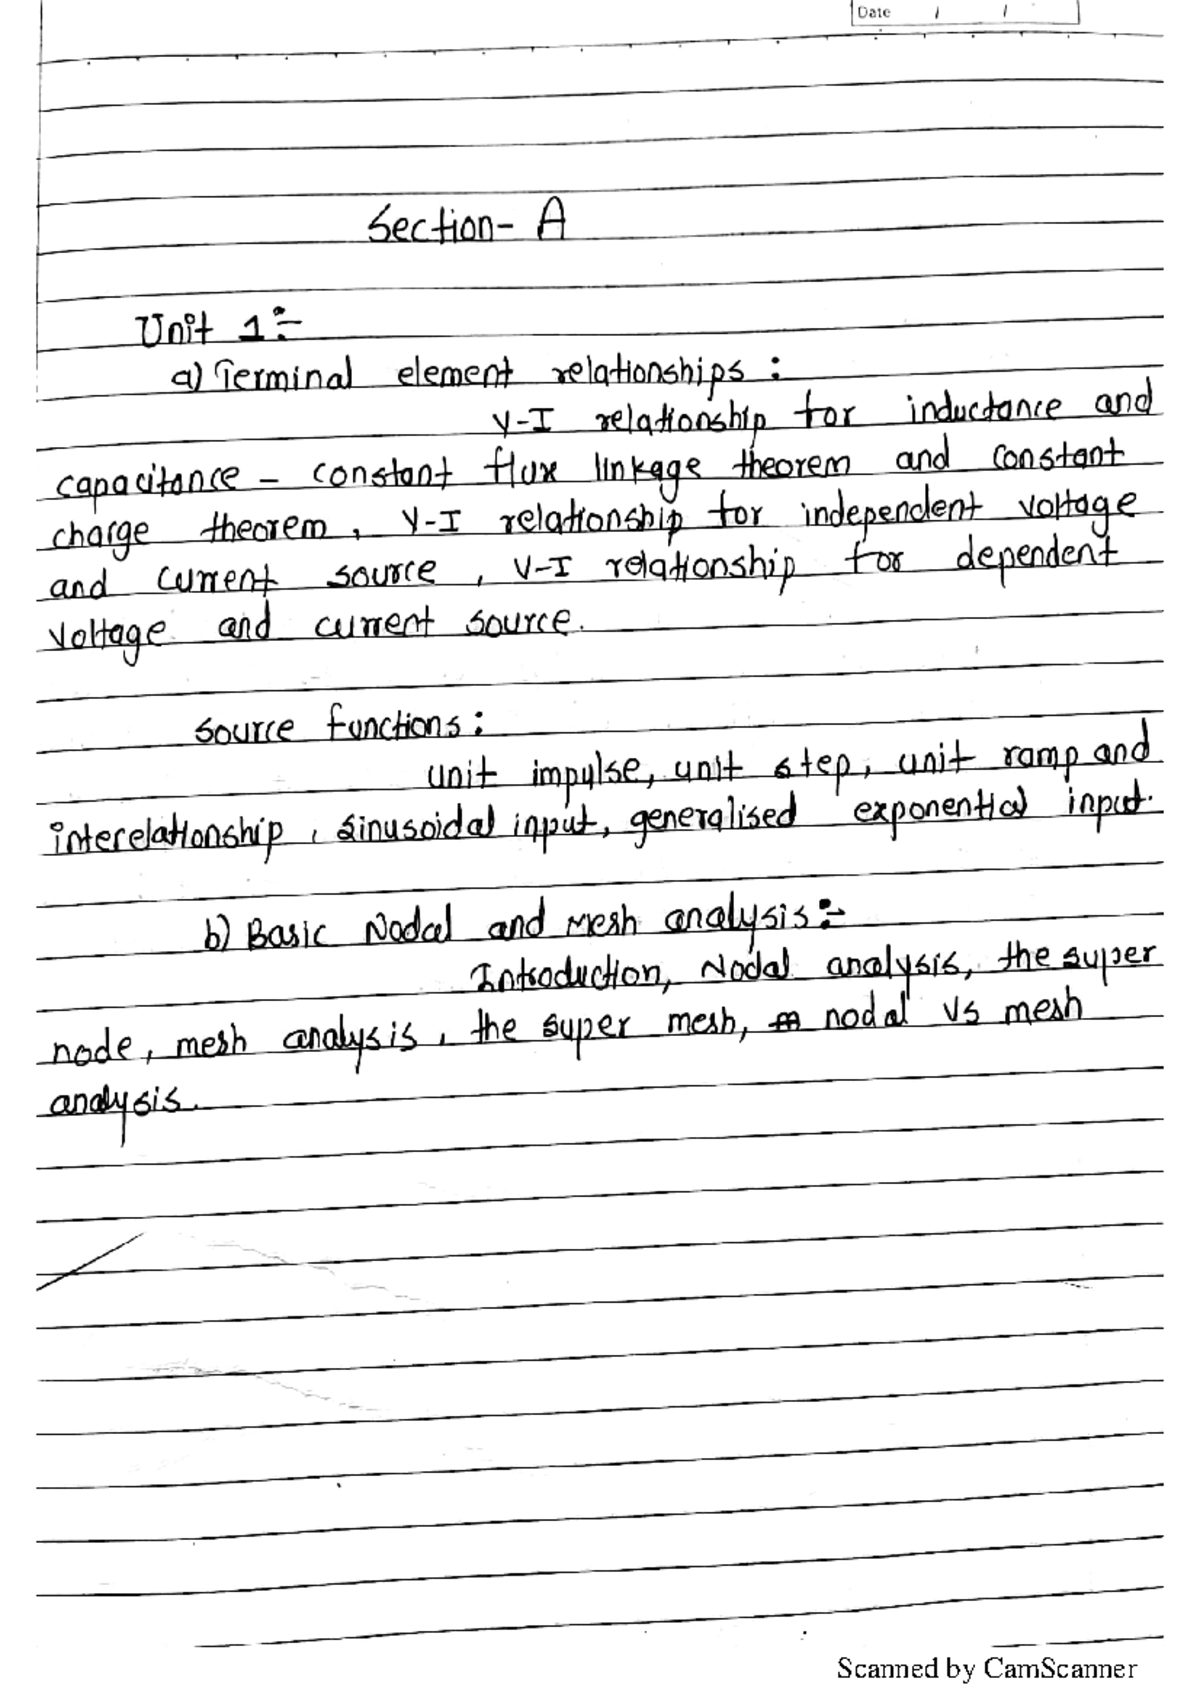 Date / /
Section- A
Unit 1:-
a) Terminal element relationships :
V-I relationship for inductance and
capacitance - constant flux linkage theorem and constant
charge theorem, V-I relationship for independent voltage
and current source, V-I relationship for dependent
voltage and current source.
Source functions :
unit impulse, unit step, unit ramp and
interelationship, sinusoidal input, generalised exponential input.
b) Basic Nodal and Mesh analysis:-
Introduction, Nodal analysis, the super
node, mesh analysis, the super mesh, nodal vs mesh
analysis.
Scanned by CamScanner